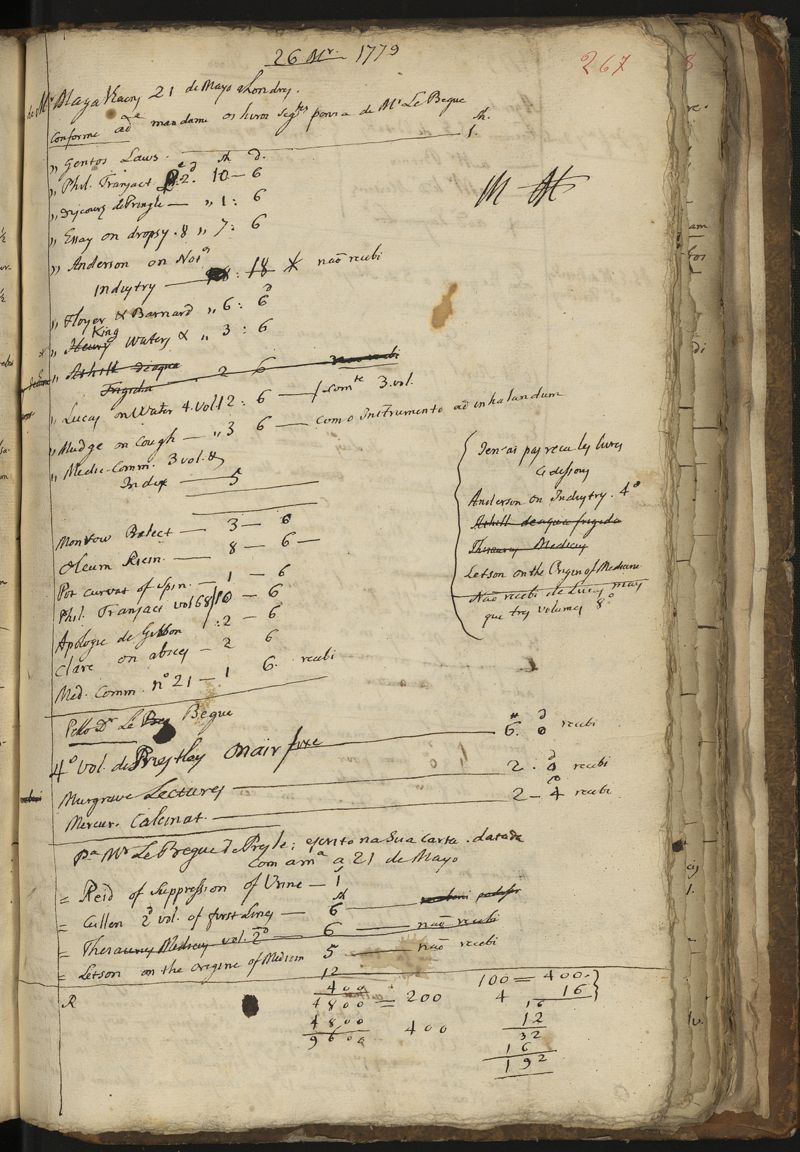 26 Mr. 1779
267
21 de Mayo a Londrs.
Conforme mandame os livros segtes para de Mr Le Begue
Sh.
" Gentos Laws. 1
sh d.
" Phil. Transact 2. 10 - 6
" Discours de Pringle — " 1 : 6
" Essay on dropsy. 8 " 7 : 6
" Anderson on
Industry — 18 : 18 * naõ recebi
M
" Floyer & Barnard " 6 : 6
King
" Henry Waters & " 3 : 6
" Ashitt de aqua
Frigida . 2 6
" Lucas on Water 4. vol 12 : 6 — somte 3. vol.
" Mudge on Cough — " 3 6 — como Instrumento ad inhalandum
" Medic-Comm. 3 vol. &
Index — 5
Jen'ai pas recu les livres
Cidessous
Anderson on Industry. 4º
Ashitt de aqua frigida
Thesaurus Medicus
Letson on the Origin of Medicine
Naõ recebi de Lucas mays
que tres volumes 8º
Monrow Balect — 3 — 6
Oleum Ricin. — 8 — 6 —
Pot curvat of spin. — 1 — 6
Phil. Transact vol 68 / 10 — 6
Apologie de Gibbon : 2 — 6
Clare on absces — 2 6
Med. Comm. nº 21 — 1 6. recebi
Pello Dr Le Begue
4º vol. de Priestley on air fixe — 6. 0 recebi
Musgrave Lectures — 2 . 0 recebi
Mercur. Calcinat. — 2 — 4 recebi
Pa Mr Le Begue de Presle; escrito na Sua Carta. datada
com a ma a 21 de Mayo
= Reid of Suppression of Urine — 1
= Cullen 2d vol. of first Lines — 6
= Thesaurus Medicus vol. 2º 6 — naõ recebi
= Letson on the origine of Medicin 5 — naõ recebi
R
12
400
4800 = 200
4800 400
9600
100 = 400.
4 16
16
12
32
16
192